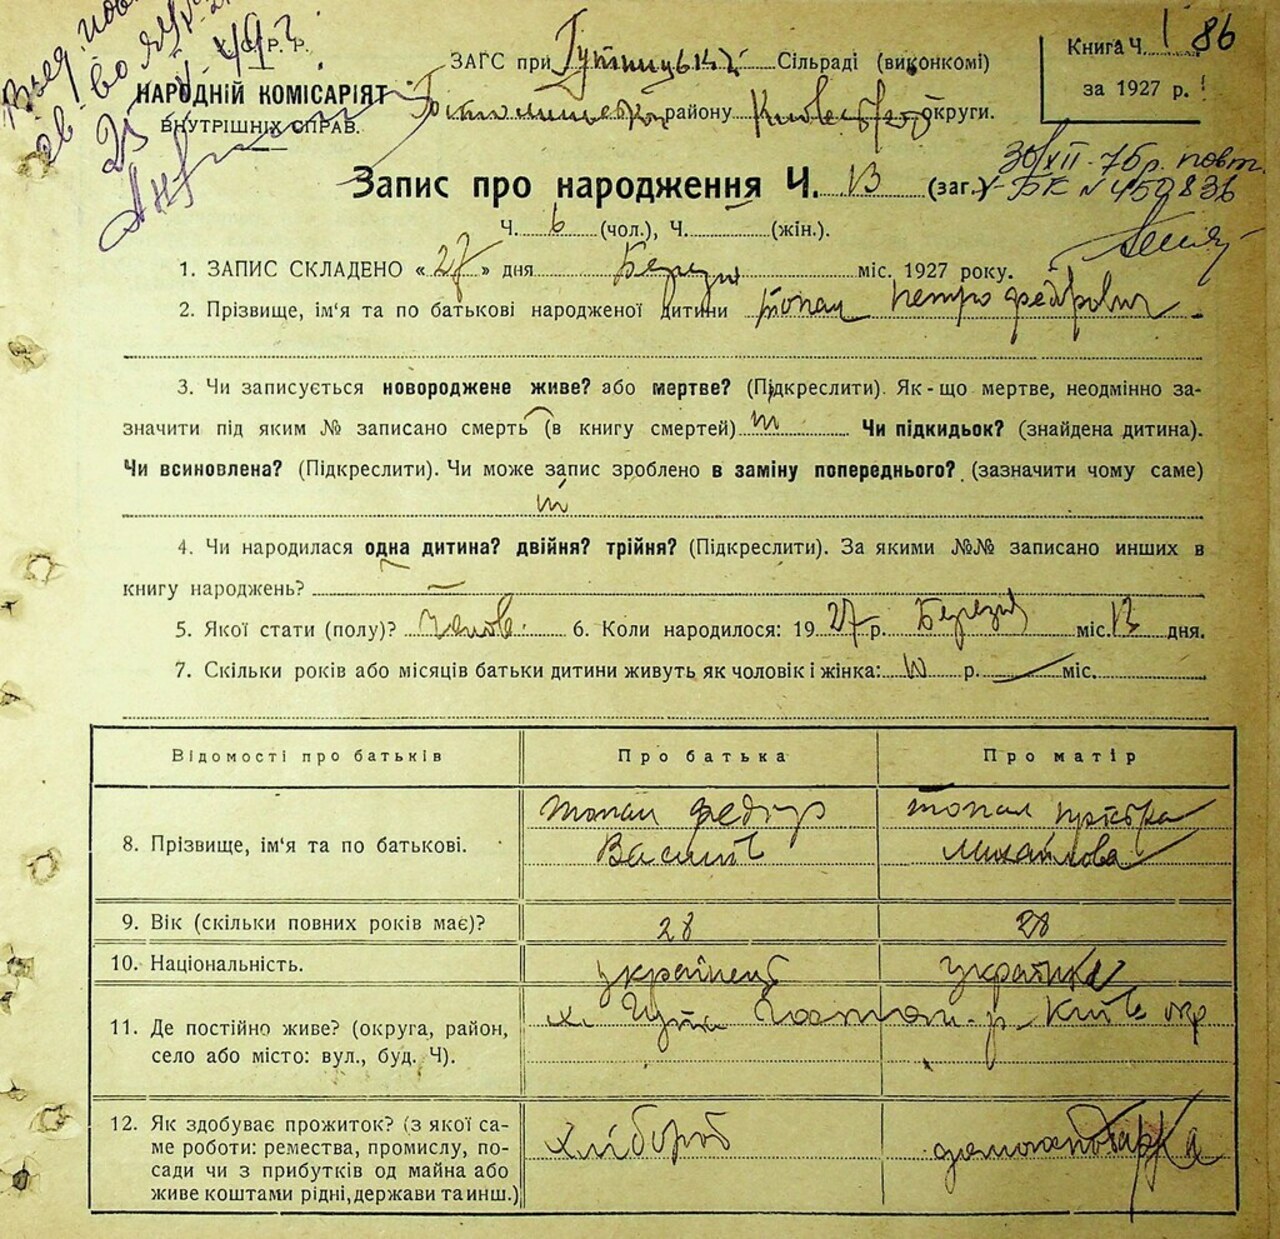 С. Р. Р.
НАРОДНІЙ КОМІСАРІЯТ
ВНУТРІШНІХ СПРАВ.
ЗАГС при Сільраді (виконкомі)
району округи.
Книга Ч. 1 86
за 1927 р.
30/XII-75р. повт.
БК № 450836
Запис про народження Ч. 13 (заг.)
Ч. 6 (чол.), Ч. (жін.).
1. ЗАПИС СКЛАДЕНО « 27 » дня Березня міс. 1927 року.
2. Прізвище, ім'я та по батькові народженої дитини Топал Петро Федорович
3. Чи записується новороджене живе? або мертве? (Підкреслити). Як-що мертве, неодмінно за-
значити під яким № записано смерть (в книгу смертей) Чи підкидьок? (знайдена дитина).
Чи всиновлена? (Підкреслити). Чи може запис зроблено в заміну попереднього? (зазначити чому саме)
4. Чи народилася одна дитина? двійня? трійня? (Підкреслити). За якими №№ записано инших в
книгу народжень? —
5. Якої стати (полу)? Чолов. 6. Коли народилося: 19 27 р. Березня міс. 13 дня.
7. Скільки років або місяців батьки дитини живуть як чоловік і жінка: 10 р. — міс.
Відомості про батьків Про батька Про матір
8. Прізвище, ім'я та по батькові. Топал Федір Топал
Василів Михайлова
9. Вік (скільки повних років має)? 28 28
10. Національність. українець українка
11. Де постійно живе? (округа, район, х. Гута р. Київ окр
село або місто: вул., буд. Ч).
12. Як здобуває прожиток? (з якої са- хлібороб домогосподарка
ме роботи: ремества, промислу, по-
сади чи з прибутків од майна або
живе коштами рідні, держави та инш.)